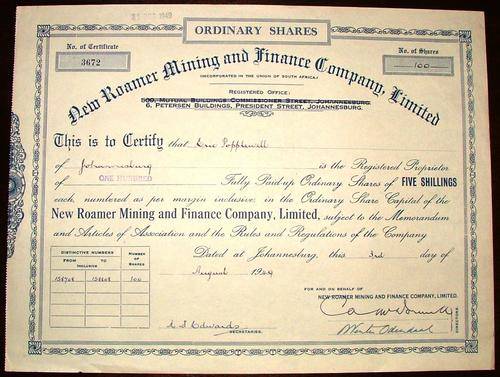 21 OCT 1949
ORDINARY SHARES
No. of Certificate
3672
No. of Shares
100
New Roamer Mining and Finance Company, Limited
(INCORPORATED IN THE UNION OF SOUTH AFRICA)
REGISTERED OFFICE:
500, MUTUAL BUILDINGS COMMISSIONER STREET, JOHANNESBURG.
6, PETERSEN BUILDINGS, PRESIDENT STREET, JOHANNESBURG.
This is to Certify that Eric Popplewell
of Johannesburg is the Registered Proprietor
of ONE HUNDRED Fully Paid-up Ordinary Shares of FIVE SHILLINGS
each, numbered as per margin inclusive, in the Ordinary Share Capital of the
New Roamer Mining and Finance Company, Limited, subject to the Memorandum
and Articles of Association and the Rules and Regulations of the Company
Dated at Johannesburg, this 3rd day of
August 19
DISTINCTIVE NUMBERS
NUMBER OF SHARES
FROM TO
INCLUSIVE
100
FOR AND ON BEHALF OF
NEW ROAMER MINING AND FINANCE COMPANY, LIMITED.
Edwards
SECRETARIES.
DIRECTORS